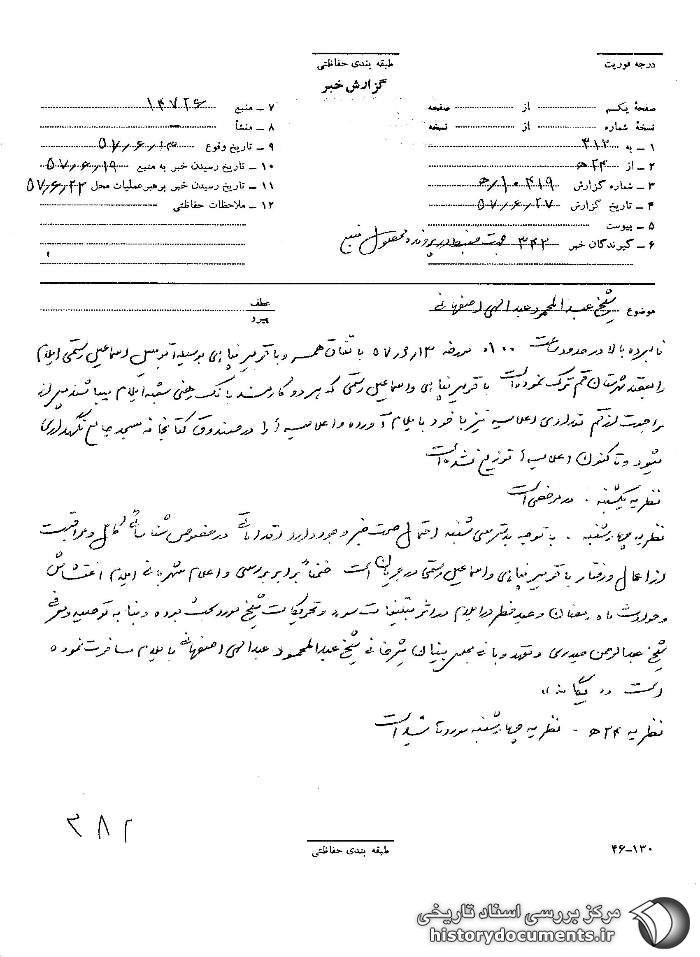 درجه فوریت
طبقه بندی حفاظتی
گزارش خبر
صفحهٔ یکم از صفحه
نسخهٔ شماره از نسخه
۱ ـ به ۳۱۲
۲ ـ از ۲۴ ه
۳ ـ شماره گزارش ۱۰۴۱۹/ه
۴ ـ تاریخ گزارش ۵۷/۶/۲۷
۵ ـ پیوست
۶ ـ گیرندگان خبر ۳۴۲ جهت ضبط در پرونده محصول منبع
۷ ـ منبع ۱۴۷۲۶
۸ ـ منشأ
۹ ـ تاریخ وقوع ۵۷/۶/۱۳
۱۰ ـ تاریخ رسیدن خبر به منبع ۵۷/۶/۱۹
۱۱ ـ تاریخ رسیدن خبر برهبر عملیات محل ۵۷/۶/۲۲
۱۲ ـ ملاحظات حفاظتی
موضوع شیخ عبدالمحمود عبدالهی اصفهانی
عطف
پیرو
نامبرده بالا در حدود ساعت ۰۱۰۰ مورخه ۵۷/۶/۱۳ باتفاق همسر و باقر میرنیا بوسیله اتومبیل اسماعیل رستمی ایلام
را بمقصد شهرستان قم ترک نموده است باقر و اسماعیل رستمی که هر دو کارمند بانک شعبه ایلام میباشند پس از
مراجعت از قم تعدادی اعلامیه نیز با خود بایلام آورده و اعلامیه‌ها را در صندوق کتابخانه مسجد جامع نگهداری
میشود و تاکنون اعلامیه‌ها توزیع نشده است
نظریه یکشنبه ـ در مرخصی است
نظریه چهارشنبه ـ با توجه به شنبه احتمال صحت خبر وجود دارد اقداماتی در خصوص شناسائی کامل و مراقبت
از اعمال و رفتار باقر و اسماعیل رستمی در جریان است ضمناً برابر بررسی و اعلام شهربانی ایلام اغتشاش
و حوادث ماه رمضان و عید فطر در ایلام در اثر تبلیغات سوء و تحریکات شیخ مورد بحث بوده و بنا به توصیه و معرفی
شیخ عبدالرحمن حیدری و شیخ عبدالمحمود عبدالهی اصفهانی بایلام مسافرت نموده
است
نظریه ۲۴ ه ـ نظریه چهارشنبه مورد تائید است
۳۸۲
طبقه بندی حفاظتی
۴۶-۱۳۰
مرکز بررسی اسناد تاریخی
historydocuments.ir